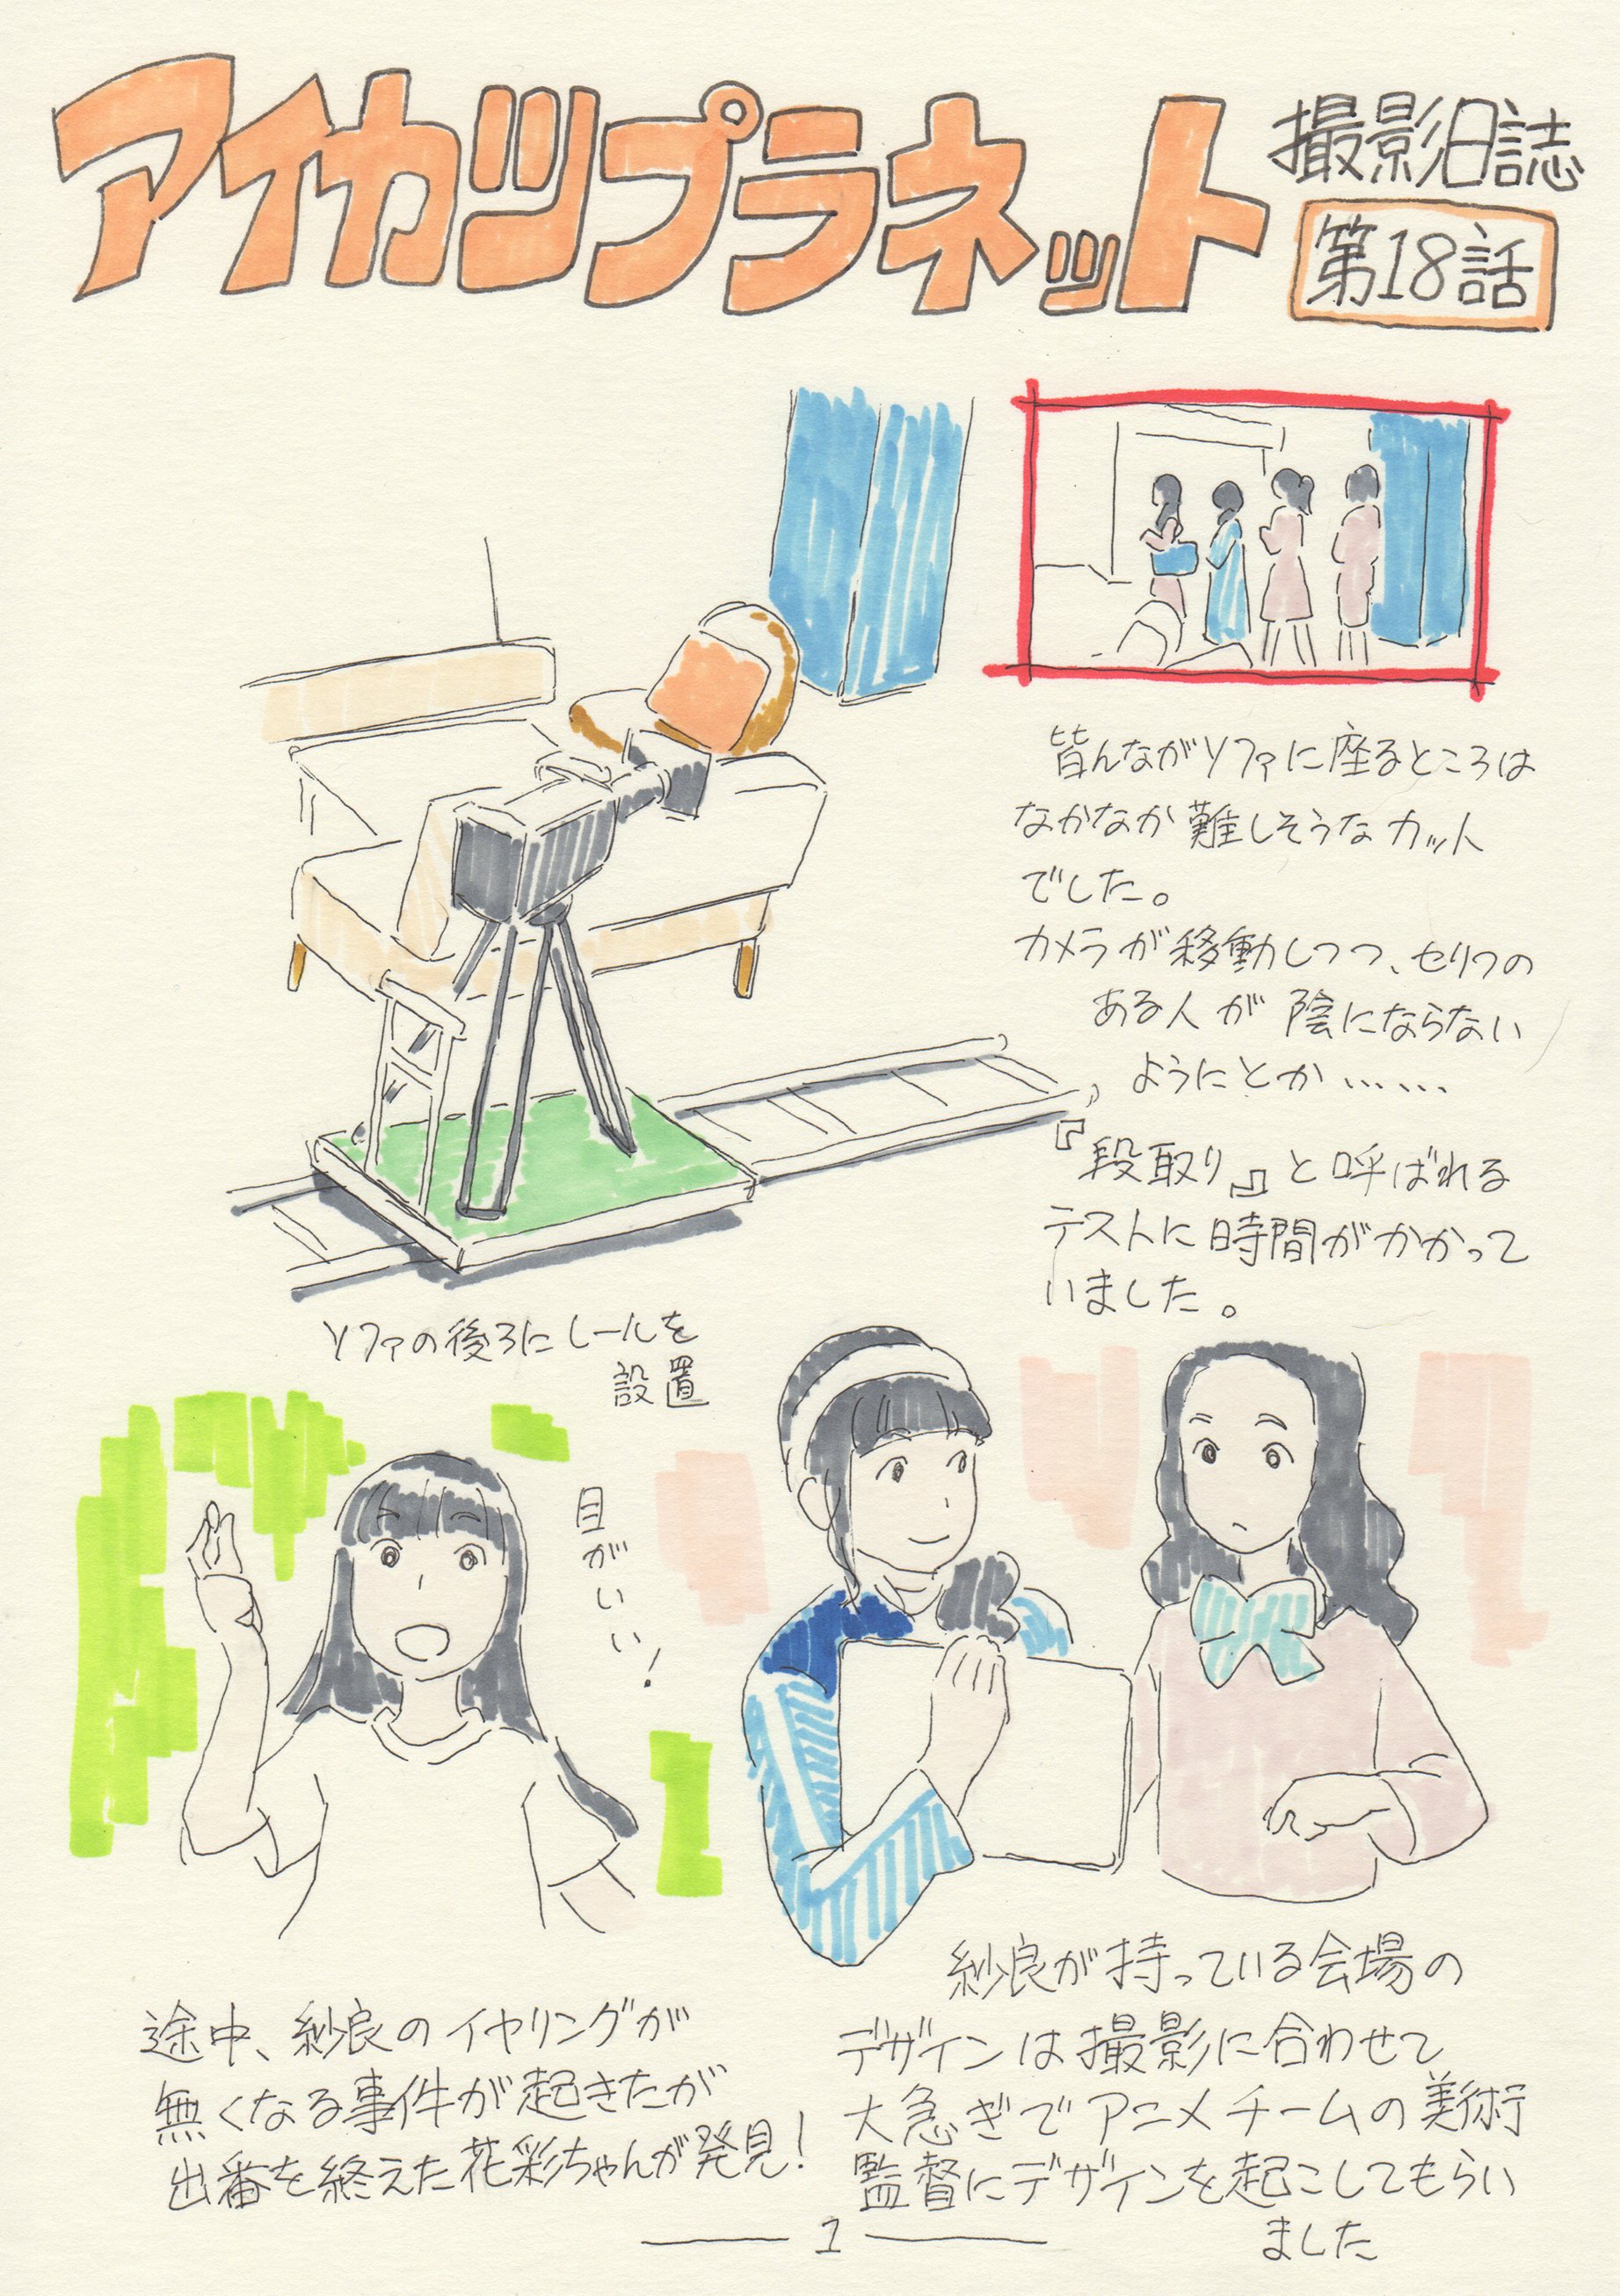 アイカツプラネット
撮影日誌
第18話
皆んながソファに座るところは
なかなか難しそうなカット
でした。
カメラが移動しつつ、セリフの
ある人が陰にならない
ようにとか……
『段取り』と呼ばれる
テストに時間がかかって
いました。
ソファの後ろにレールを
設置
目がいい！
途中、紗良のイヤリングが
無くなる事件が起きたが
出番を終えた花彩ちゃんが発見！
紗良が持っている会場の
デザインは撮影に合わせて
大急ぎでアニメチームの美術
監督にデザインを起こしてもらい
ました
1